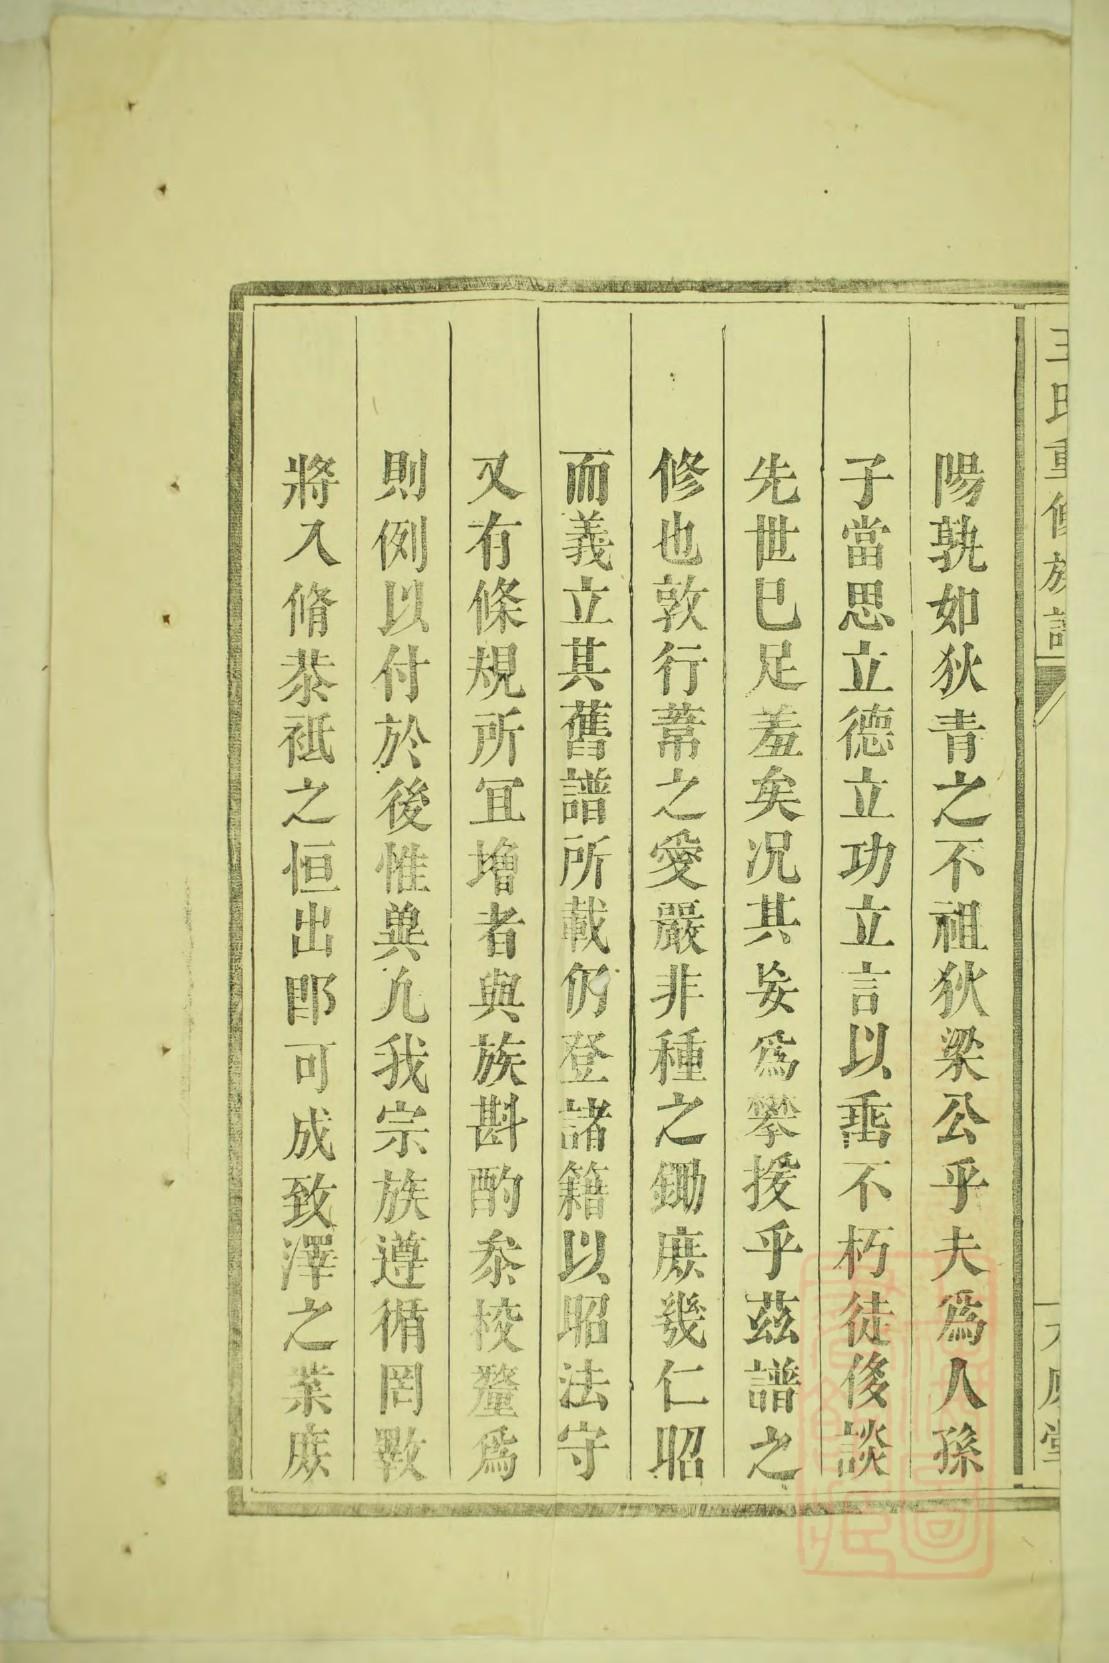 王氏重修族譜
陽孰如狄青之不祖狄梁公乎夫爲人孫
子當思立德立功立言以垂不朽徒侈談
先世已足羞矣况其妄爲攀援乎茲譜之
修也敦行葦之愛嚴非種之鋤庶幾仁昭
而義立其舊譜所載仍登諸籍以昭法守
又有條規所冝增者與族斟酌叅校釐爲
則例以付於後惟兾凡我宗族遵循罔斁
將入脩恭祗之恒出卽可成致澤之業庶